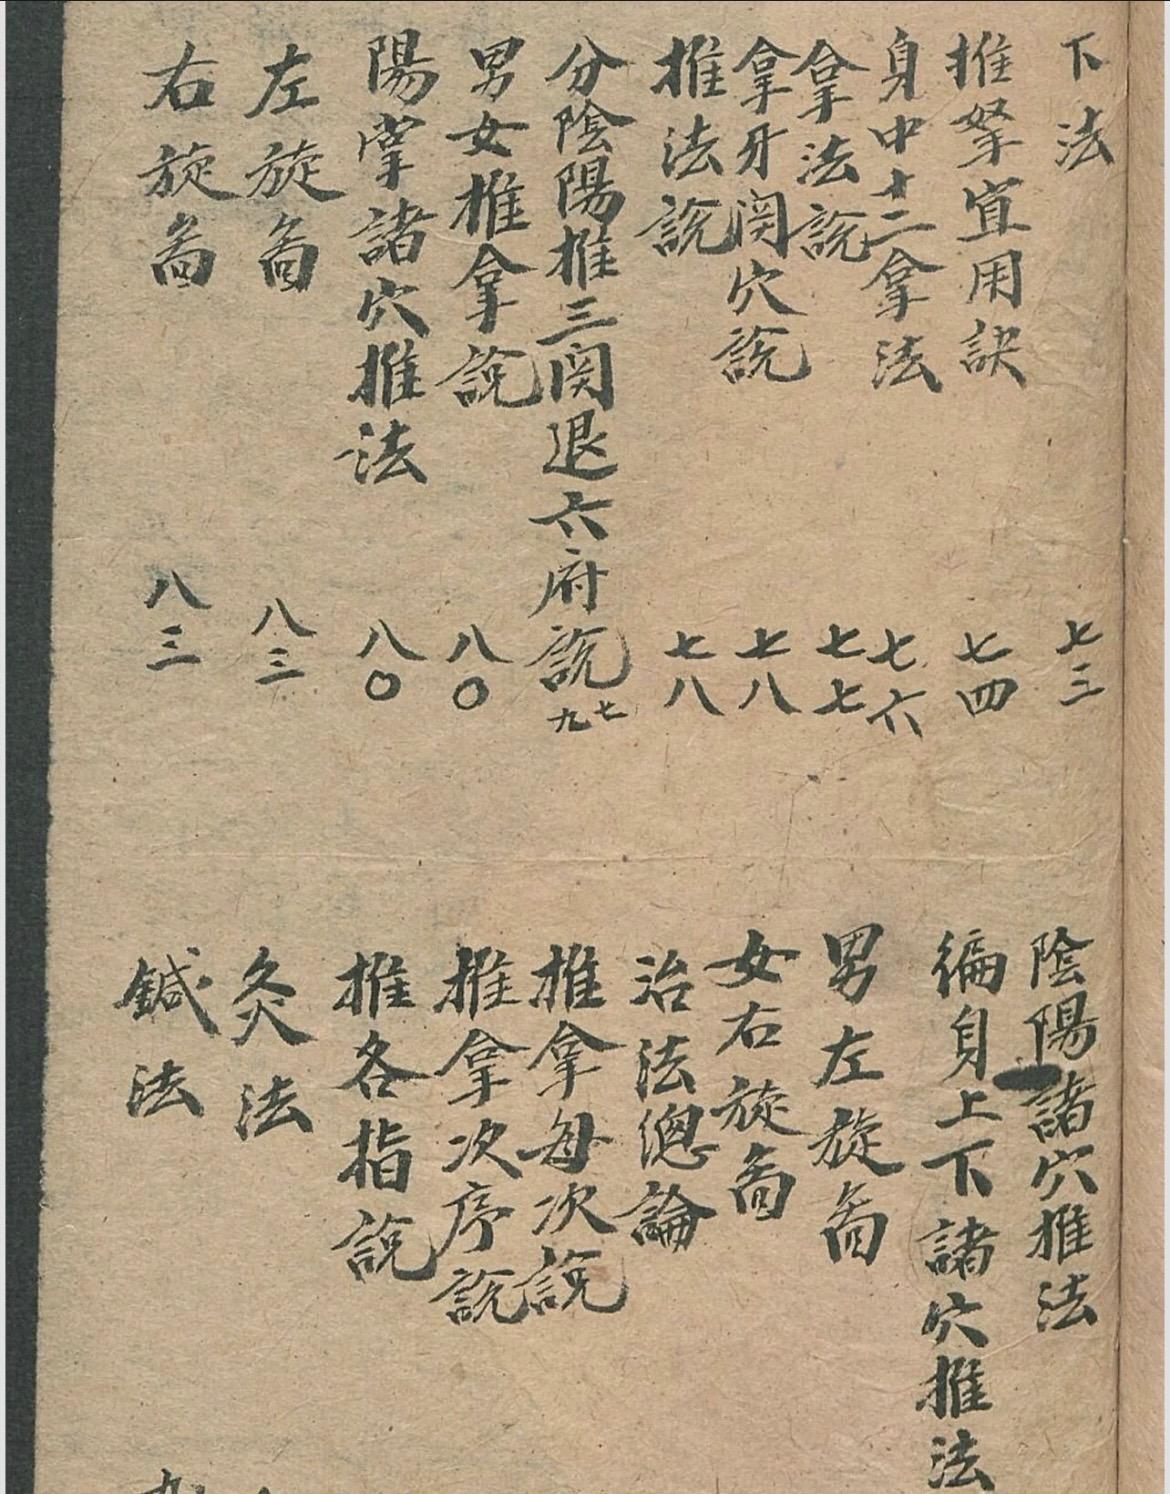 下法 七三
推拏宜用訣 七四
身中十二拿法 七六
拿法説 七七
拿牙関穴説 七八
推法説 七八
分陰陽推三関退六府説 七九
男女推拿説 八〇
陽掌諸穴推法 八〇
左旋啚 八三
右旋啚 八三
陰陽諸穴推法
徧身上下諸穴推法
男左旋啚
女右旋啚
治法總論
推拿每次説
推拿次序説
推各指説
灸法
鍼法